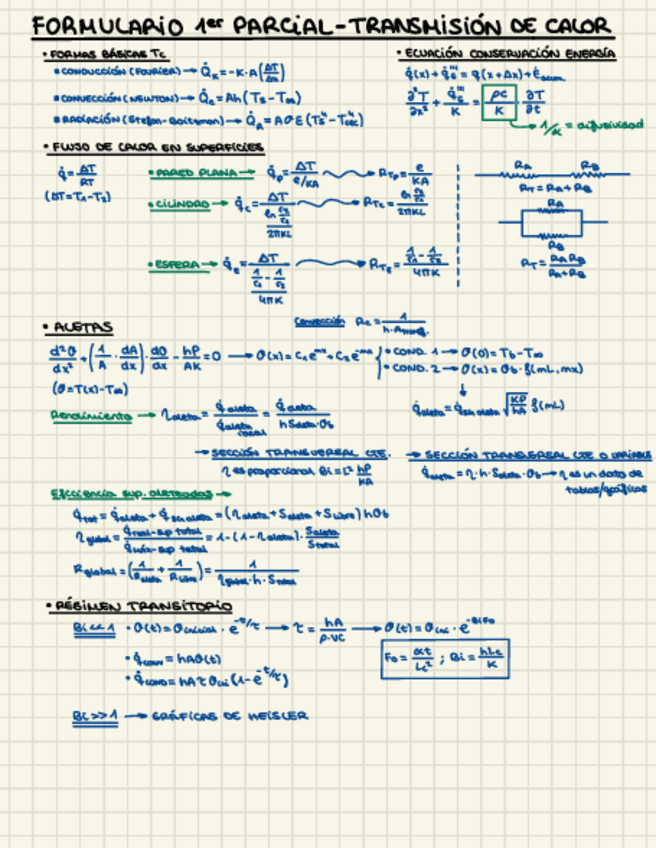 FORMULARIO 1er PARCIAL-TRANSMISIÓN DE CALOR
• FORMAS BÁSICAS Tc
• CONDUCCIÓN (FOURIER) → Q̇_K = -K·A(ΔT/Δx)
• CONVECCIÓN (NEWTON) → Q̇_c = Ah(Ts-T∞)
• RADIACIÓN (Stefan-Boltzman) → Q̇_R =
• ECUACIÓN CONSERVACIÓN ENERGÍA
∂²T/∂x² + q̇_G'''/K = ρc/K · ∂T/∂t
→ 1/α = difusividad
• FLUJO DE CALOR EN SUPERFICIES
q̇ = ΔT/RT
(ΔT=T1-T2)
• PARED PLANA → q̇_p = ΔT/(e/KA) → RTp = e/KA
• CILINDRO → q̇_c = ΔT/(ln(r2/r1)/2πKL) → RTc = ln(r2/r1)/2πKL
• ESFERA → q̇_e = ΔT/((1/r1 - 1/r2)/4πK) → RTe = (1/r1 - 1/r2)/4πK
RA RB
RT = RA + RB
RA
RB
RT = RA RB/(RA+RB)
Convección Rc =
• ALETAS
d²θ/dx² + (1/A · dA/dx) · dθ/dx - hP/AK = 0 → θ(x) = C1e^mx + C2e^-mx
• COND. 1 → θ(0) = Tb-T∞
• COND. 2 → θ(x) = θb · f(mL, mx)
(θ=T(x)-T∞)
Rendimiento → η aleta = q̇ aleta/q̇ aleta ideal = q̇ aleta/(h S aleta · θb)
√(KP/hA) f(mL)
→ SECCIÓN TRANSVERSAL CTE.
η es proporcional Bi = L² hP/KA
→ SECCIÓN TRANSVERSAL CTE O VARIABLE
q̇ aleta = η · h · S aleta · θb → η es un dato de
tablas/gráficas
Eficiencia sup. aleteadas →
q̇ tot = q̇ aleta + q̇ sin aleta = (η aleta + S aleta + S libre) hθb
η global = q̇ real-sup total/q̇ máx-sup total = 1-(1-η aleta) · S aleta/S total
R global = (1/R aleta + 1/R libre) = 1/(η global · h · S total)
• RÉGIMEN TRANSITORIO
Bi<<1 • θ(t) = θ inicial · e^(-t/τ) → τ = hA/ρ·VC → θ(t) = θ ini · e^(-BiFo)
• q̇ conv = hAθ(t)
• q̇ cond = hAτ θ ini (1-e^(-t/τ))
Fo = αt/Lc² ; Bi = hLc/K
Bi>>1 → GRÁFICAS DE HEISLER